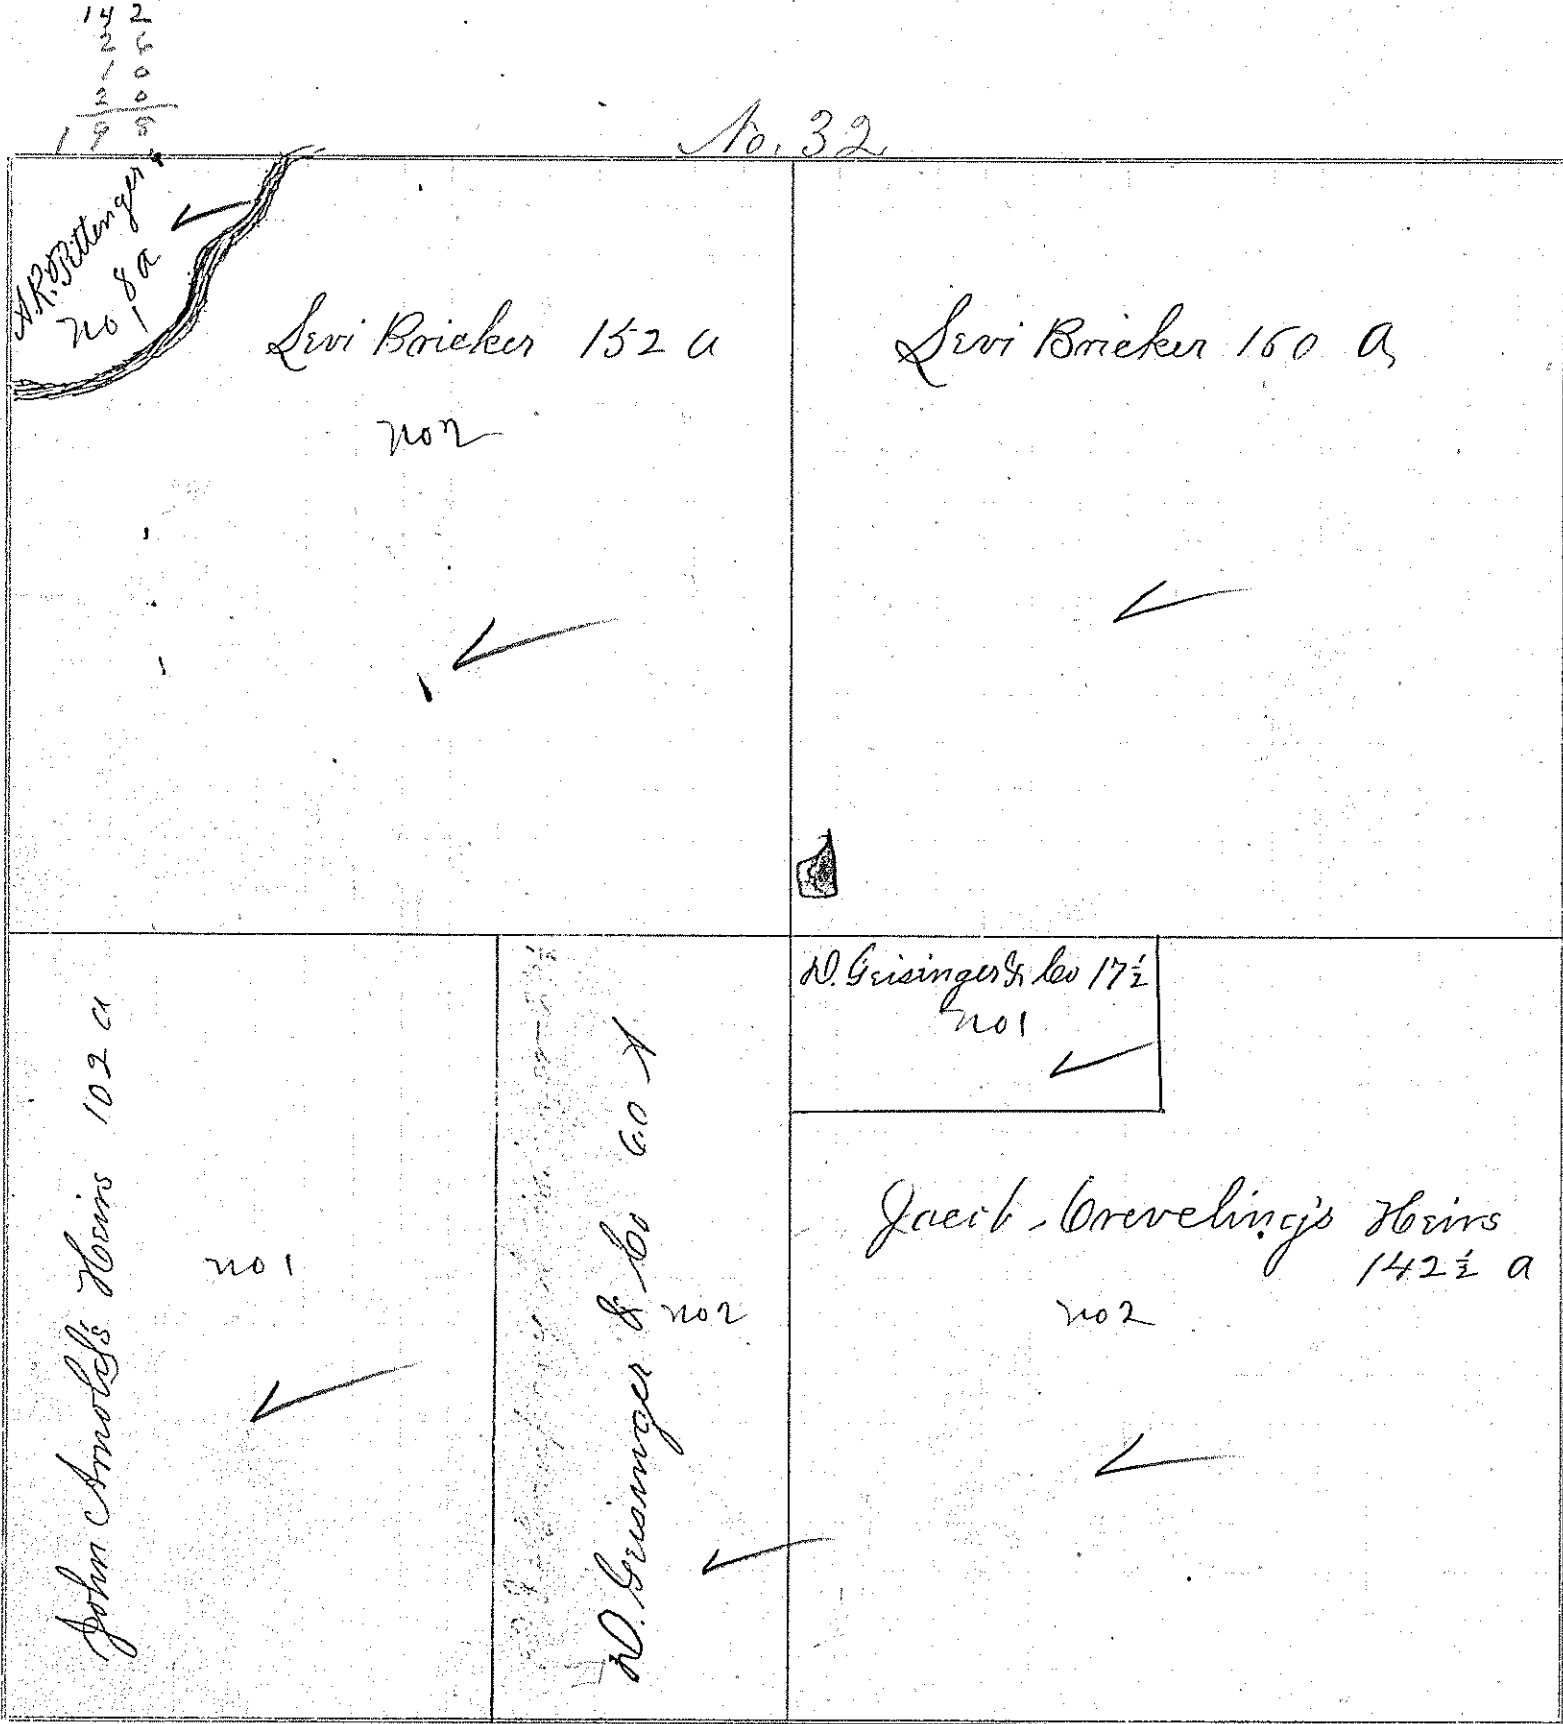 142
26
10
20
198
No. 32
A.R. Bittenger
8 a
no 1
Levi Bricker 152 a
no 2
Levi Bricker 160 a
John Arnold's Heirs 102 a
no 1
D. Geisinger & Co 60 A
no 2
D. Geisinger & Co 17½
no 1
Jacob Creveling's Heirs
142½ a
no 2